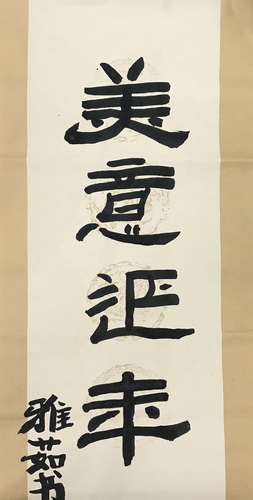 美意延年
雅茹书